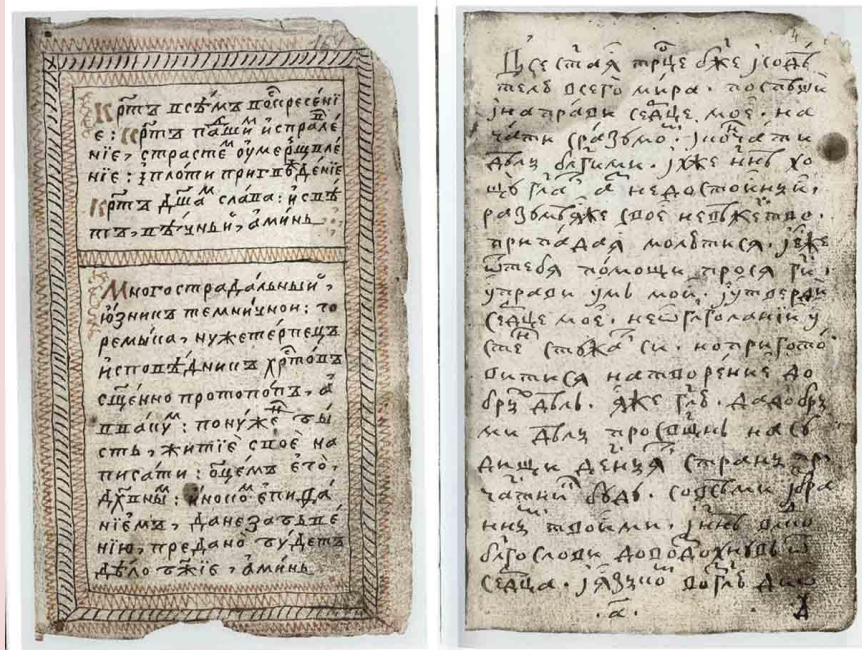 Крт҃ъ всѣ́мъ воскресе́нї
е: Крт҃ъ па́ши испрале́
нїе, страсте́м оу҆мерщвле́
нїе: и҆ плоти пригвожде́нїе
Крт҃ъ дш҃а́м слава: и҆ свѣ́
тъ, вѣ́чный, а҆ми́нь
Многострада́льный,
ю҆́зникъ темни́чной: го
ремы́ка, нужетерпецъ
и҆сповѣ́дникъ хр҃то́въ
сщ҃е́нно протопо́пъ, а҆
вваку́м: пону́жен бы́
сть, житїѐ своѐ на
писа́ти: ѻ҆ц҃е́мъ е҆го̀,
дх҃о́вным: и҆́ноком е҆пифа́
нїемъ, да не забве́
нїю, пре́дано бу́детъ
дѣ́ло бж҃їе, а҆ми́нь
Всест҃а́ѧ трⷪ҇це бж҃е і҆ содѣ́
телю всего̀ ми́ра. поспѣшѝ
і҆ напра́ви се́рдце моѐ. на
ча́ти с ра́зумом. і҆ конча́ти
дѣ́лы бл҃ги́ми. ꙗ҆́же ны́нѣ хо
щꙋ̀ гл҃а́ти а҆́зъ недосто́йный.
разумѣ́ѧ же своѐ невѣ́жество.
припа́даѧ молю́тисѧ. і҆ е҆́же
ѿ тебѧ̀ по́мощи просѧ̀ гдⷭ҇и,
упра́ви ум мой. і҆ утвердѝ
се́рдце моѐ.
витисѧ на творе́ние до
брых дѣ́лъ. ꙗ҆́же гл҃ю. да добры
ми дѣ́лы просвѣще́нъ на су
дищи десны́ѧ страны̀ при
ча́стник бу́дꙋ. со всѣ́ми и҆збра
нными твои́ми. і҆ ны́нѣ влⷣко
бл҃гословѝ да воздохну́въ ѿ
се́рдца. і҆ ѧ҆зы́ком возгл҃ю
.а҃.